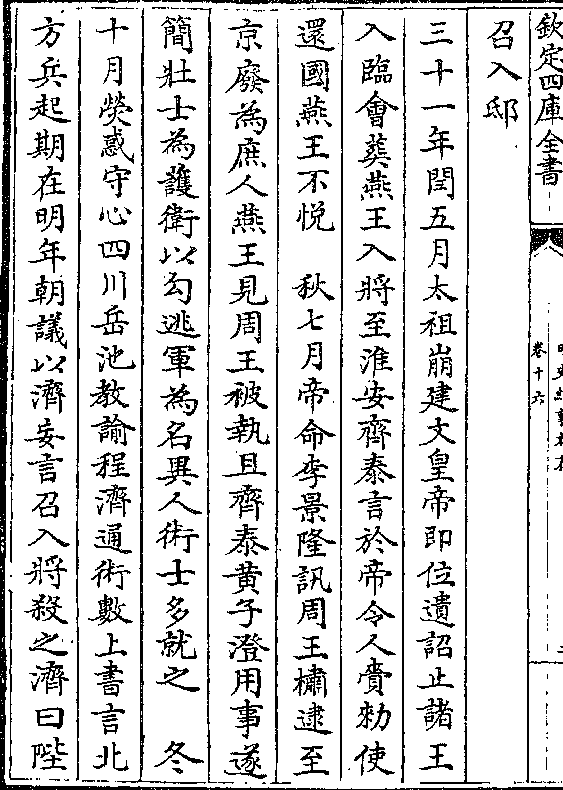 欽定四庫全書
卷十六
召入邸
三十一年閏五月太祖崩建文皇帝即位遺詔止諸王
入臨會葬燕王入將至淮安齊泰言於帝令人賫勅使
還國燕王不悅　秋七月帝命李景隆訊周王橚逮至
京廢為庶人燕王見周王被執且齊泰黄子澄用事遂
簡壯士為護衛以勾逃軍為名異人術士多就之　冬
十月熒惑守心四川岳池教諭程濟通術數上書言北
方兵起期在明年朝議以濟妄言召入將殺之濟曰陛